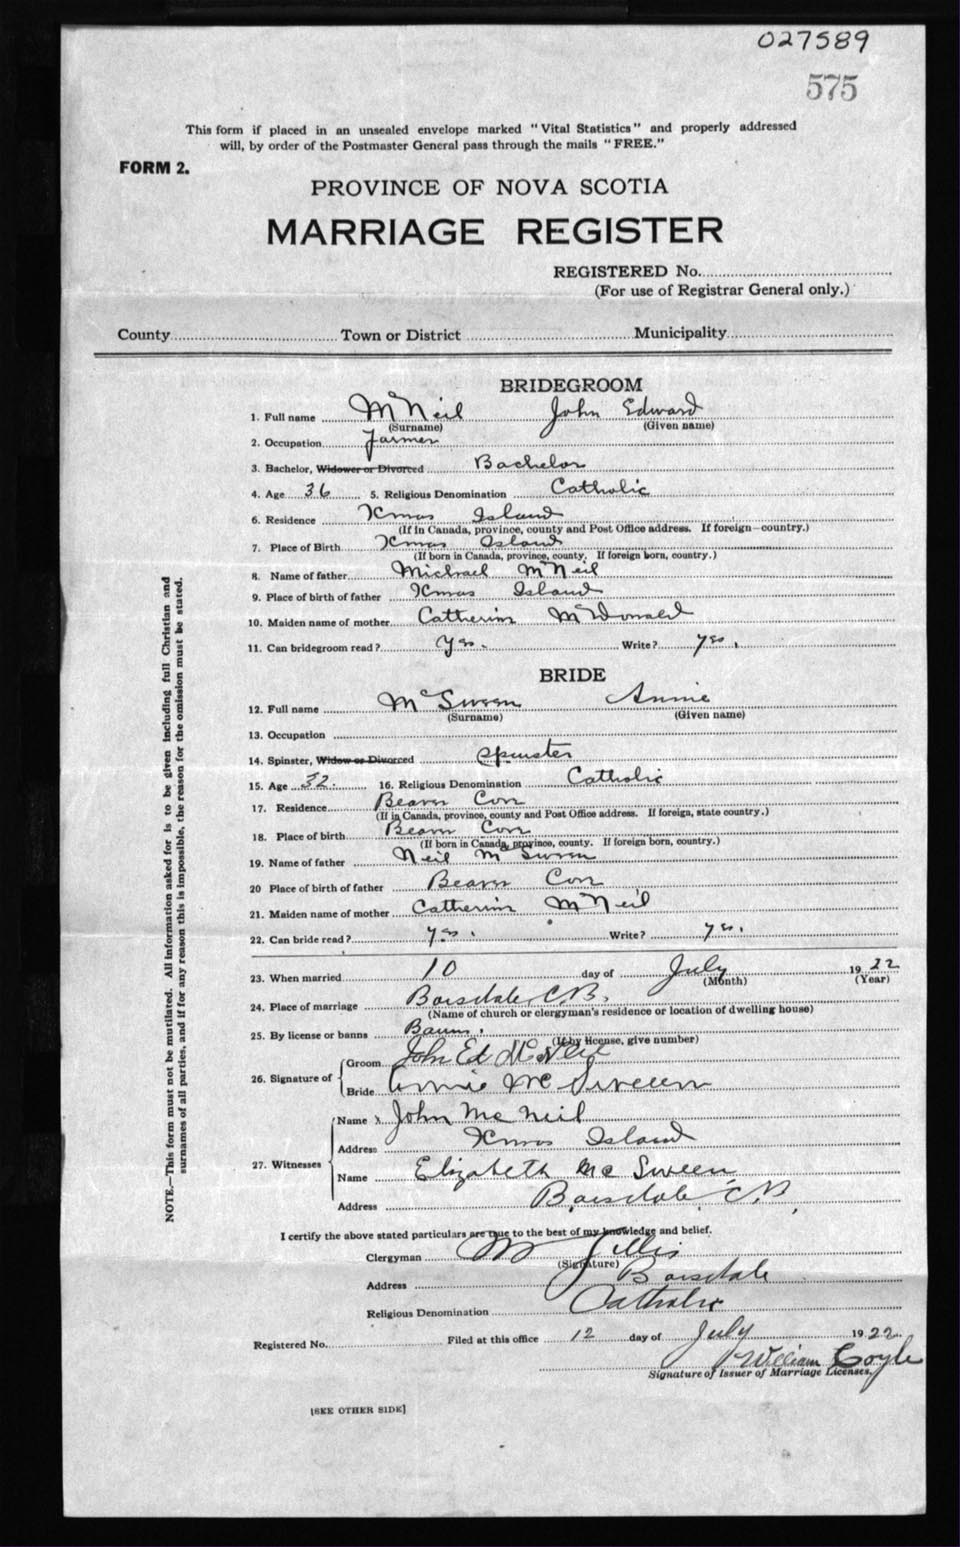 027589
575
This form if placed in an unsealed envelope marked "Vital Statistics" and properly addressed
will, by order of the Postmaster General pass through the mails "FREE."
FORM 2.
PROVINCE OF NOVA SCOTIA
MARRIAGE REGISTER
REGISTERED No.
(For use of Registrar General only.)
County Town or District Municipality
BRIDEGROOM
1. Full name McNeil John Edward
(Surname) (Given name)
2. Occupation Farmer
3. Bachelor, Widower or Divorced Bachelor
4. Age 36 5. Religious Denomination Catholic
6. Residence Xmas Island
(If in Canada, province, county and Post Office address. If foreign—country.)
7. Place of Birth Xmas Island
(If born in Canada, province, county. If foreign born, country.)
8. Name of father Michael McNeil
9. Place of birth of father Xmas Island
10. Maiden name of mother Catherin McDonald
11. Can bridegroom read? Yes. Write? yes.
BRIDE
12. Full name McSween Annie
(Surname) (Given name)
13. Occupation
14. Spinster, Widow or Divorced Spinster
15. Age 32. 16. Religious Denomination Catholic
17. Residence Beaver Cov
(If in Canada, province, county and Post Office address. If foreign, state country.)
18. Place of birth Beaver Cov
(If born in Canada, province, county. If foreign born, country.)
19. Name of father Neil McSween
20 Place of birth of father Beaver Cov
21. Maiden name of mother Catherin McNeil
22. Can bride read? yes. Write? yes.
23. When married 10 day of July 1922
(Month) (Year)
24. Place of marriage Boisdale, C.B.
(Name of church or clergyman's residence or location of dwelling house)
25. By license or banns Banns.
(If by license, give number)
26. Signature of Groom John Ed McNeil
Bride Annie McSween
27. Witnesses Name John McNeil
Address Xmas Island
Name Elizabeth McSween
Address Boisdale, C.B.
I certify the above stated particulars are true to the best of my knowledge and belief.
Clergyman Gillis
(Signature)
Address Boisdale
Religious Denomination Catholic
Registered No. Filed at this office 12 day of July 1922
William Coyle
Signature of Issuer of Marriage Licenses,
[SEE OTHER SIDE]
NOTE.—This form must not be mutilated. All information asked for is to be given including full Christian and
surnames of all parties, and if for any reason this is impossible, the reason for the omission must be stated.